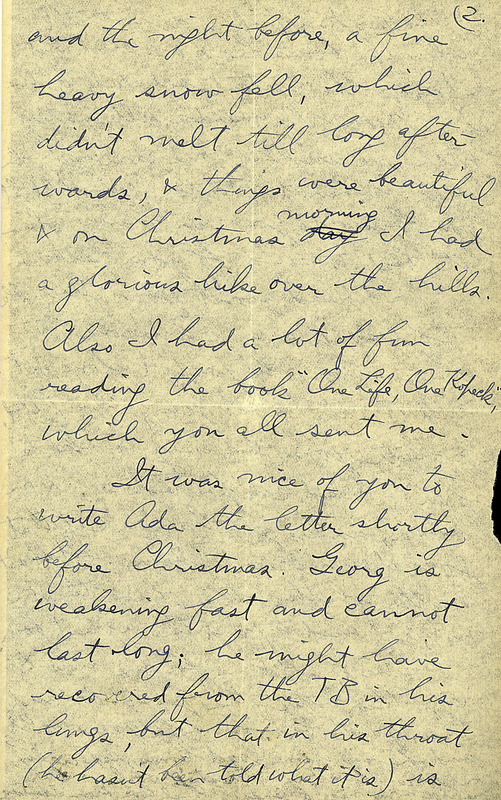 (2.
and the night before, a fine
heavy snow fell, which
didn't melt till long after-
wards, & things were beautiful
morning
& on Christmas day I had
a glorious hike over the hills.
Also I had a lot of fun
reading the book "One Life, One Kopeck",
which you all sent me.
It was nice of you to
write Ada the letter shortly
before Christmas. Georg is
weakening fast and cannot
last long; he might have
recovered from the TB in his
lungs, but that in his throat
(he hasn't been told what it is) is